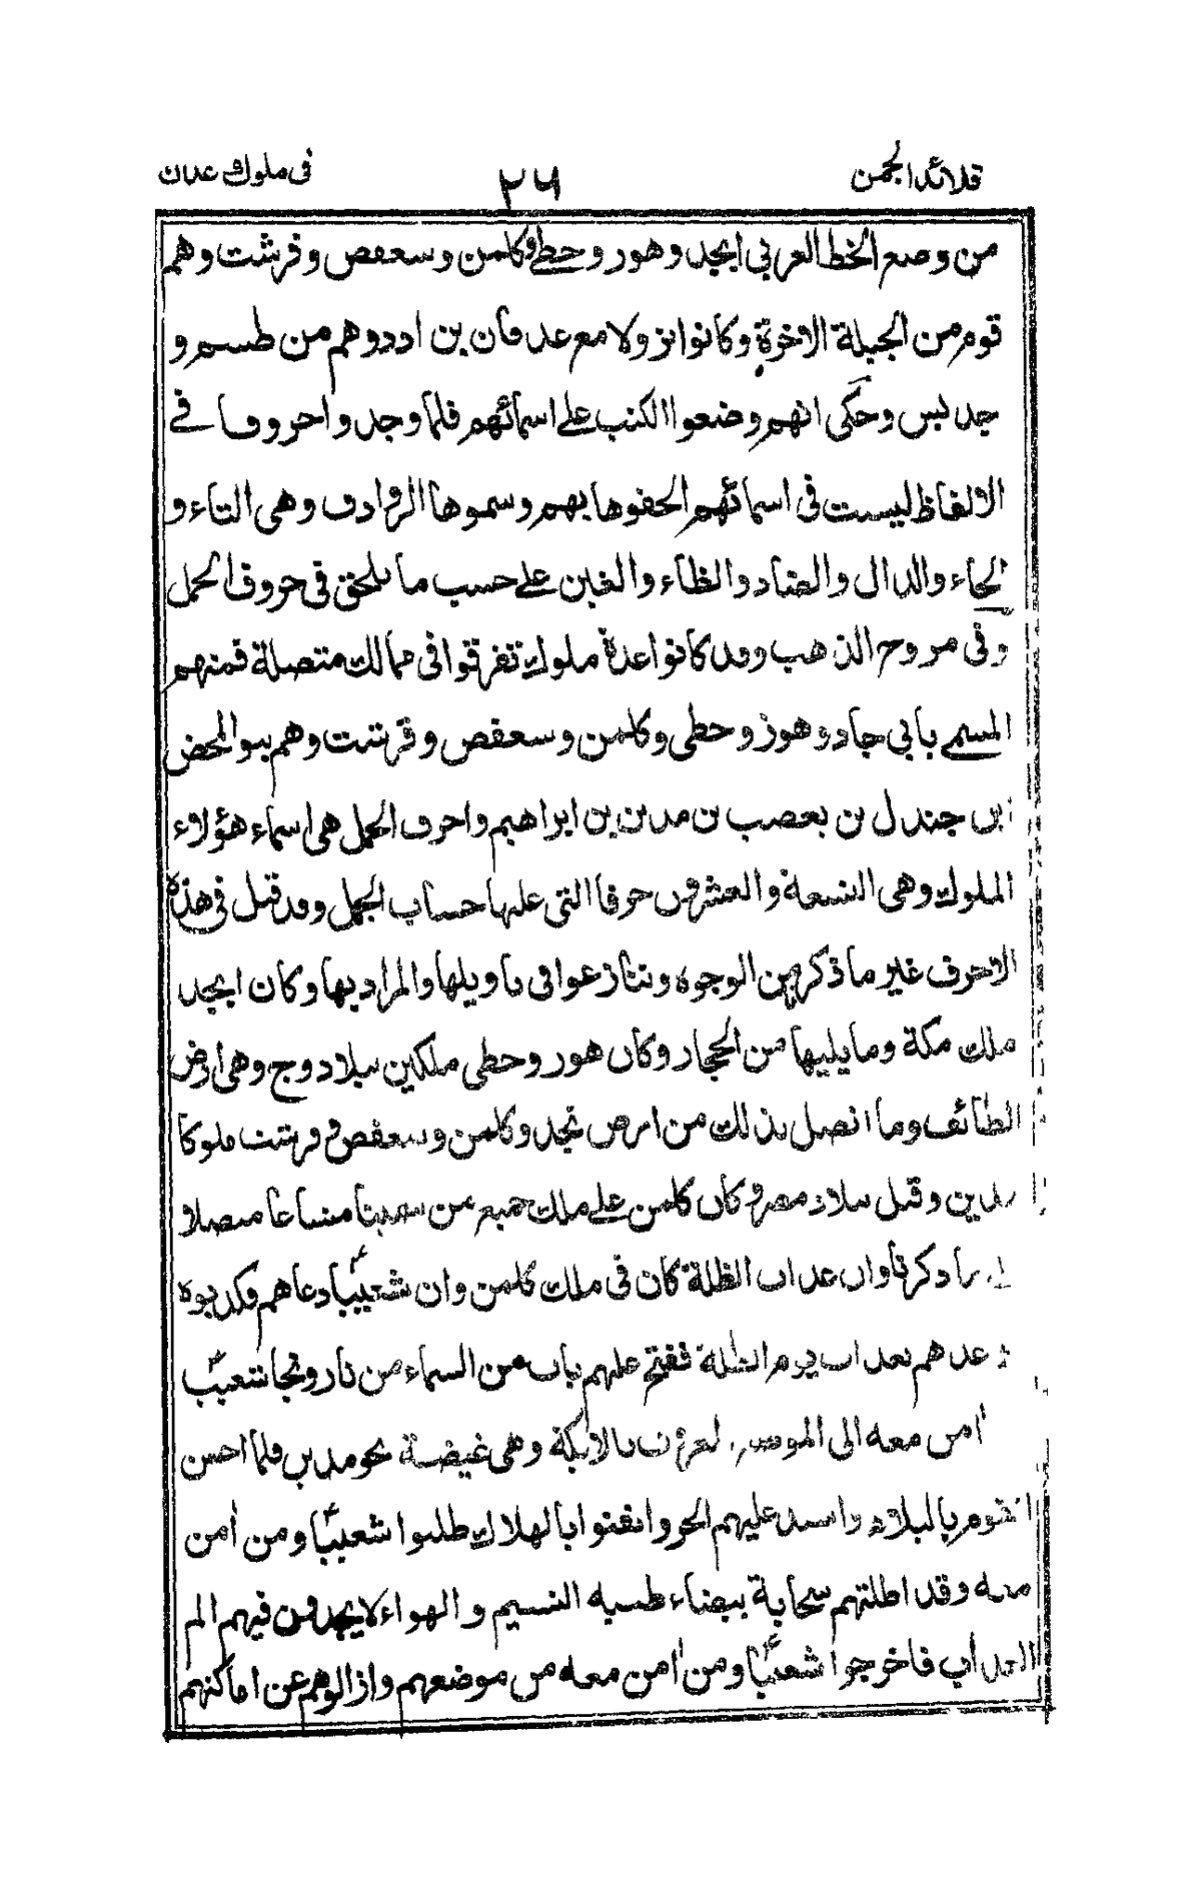 قلائد الجمن ٢٦ فى ملوك عدن
من وضع الخط العربي ابجد وهوز وحطي وكلمن وسعفص وقرشت وهم
قوم من الجبلة الاخرة وكانوا نزولا مع عدنان بن ادد وهم من طسم و
جديس وحكى انهم وضعوا الكتب على اسمائهم فلما وجدوا حروفا في
الالفاظ ليست فى اسمائهم الحقوها بهم وسموها الروادف وهى الثاء و
الخاء والذال والضاد والظاء والغين على حسب ما يلحق فى حروف الجمل
وفى مروج الذهب وقد كانوا عدة ملوك تفرقوا فى ممالك متصلة فمنهم
المسمى بابي جاد وهوز وحطى وكلمن وسعفص وقرشت وهم بنو المحض
بن جندل بن يعصب بن مدين بن ابراهيم واحرف الجمل هى اسماء هؤلاء
الملوك وهى التسعة والعشرون حرفا التى عليها حساب الجمل وقد قيل فى هذه
الاحرف غير ما ذكر من الوجوه وتنازعوا فى تاويلها والمراد بها وكان ابجد
ملك مكة وما يليها من الحجاز وكان هوز وحطى ملكين ببلاد وج وهى ارض
الطائف وما اتصل بذلك من ارض نجد وكلمن وسعفص وقرشت ملوكا
بمدين وقيل ببلاد مصر وكان كلمن على ملك جميع من سمينا مشاعا متصلا
ما ذكرنا وان عذاب الظلة كان فى ملك كلمن وان شعيبا دعاهم فكذبوه
عدهم بعذاب يوم الظلة ففتح عليهم باب من السماء من نار ونجا شعيب
امن معه الى الموضع المعروف بالايكة وهى غيضة نحو مدين فلما احس
القوم بالبلاء واشتد عليهم الحر وايقنوا بالهلاك طلبوا شعيبا ومن امن
معه وقد اظلتهم سحابة بيضاء طيبة النسيم والهواء لا يجدون فيهم الم
العذاب فاخرجوا شعيبا ومن امن معه من موضعهم وازالوهم عن اماكنهم